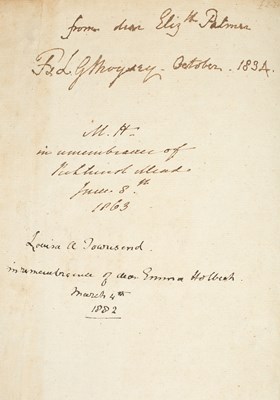 from dear Eliz.th Palmer
October. 1834.
M. H.
in remembrance of
June. 8.th
1863
Louisa A Townsend.
in remembrance of dear Emma Holbech.
March 4th
1882